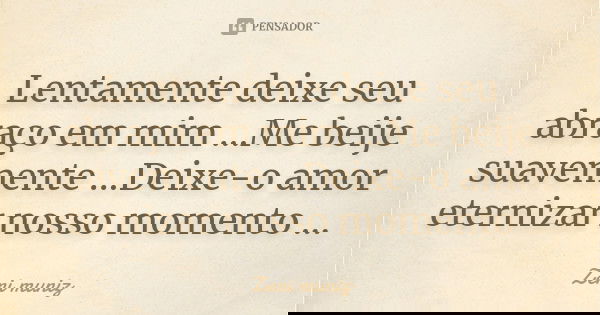 PENSADOR
Lentamente deixe seu
abraço em mim ...Me beije
suavemente ...Deixe-o amor
eternizar nosso momento ...
Leni muniz